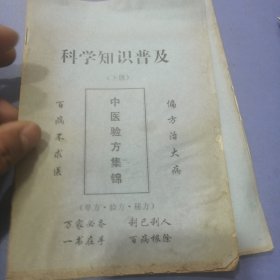 科学知识普及
(下册)
百病不求医
中医验方集锦
偏方治大病
(单方·验方·秘方)
万家必备 利己利人
一书在手 百病根除